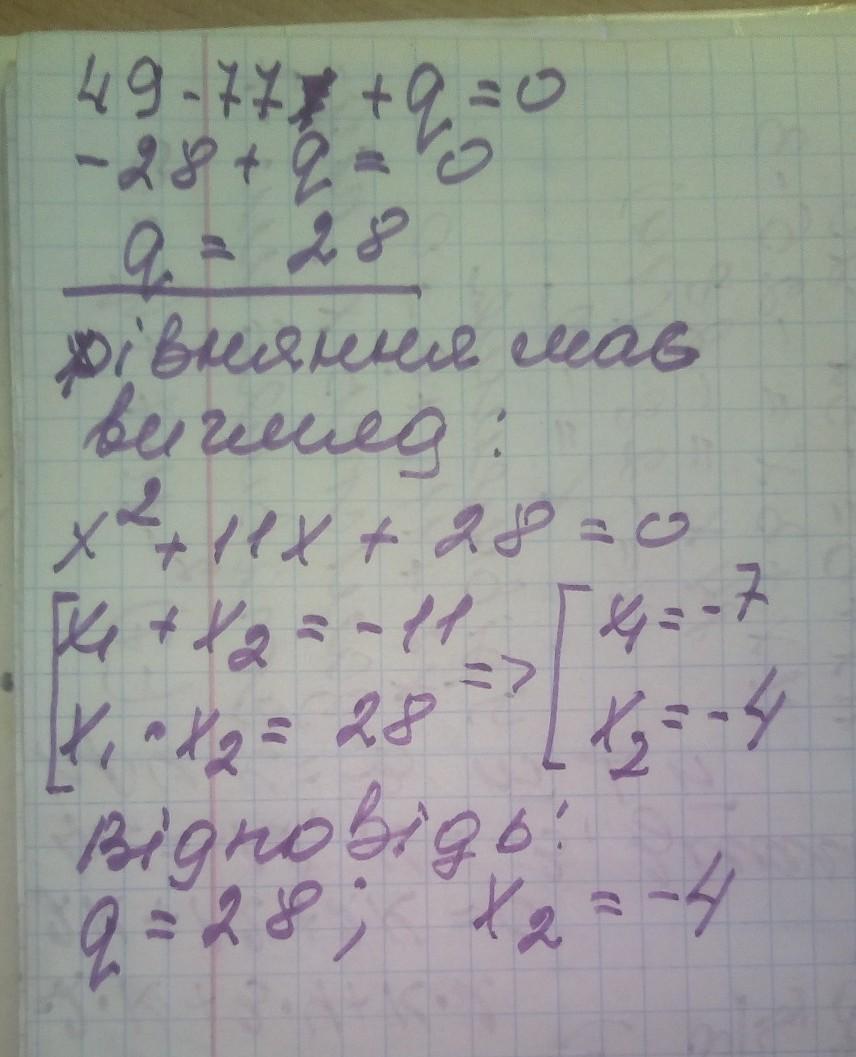 49-77 + q = 0
-28 + q = 0
q = 28
рівняння має
вигляд :
x² + 11x + 28 = 0
[x₁ + x₂ = -11 => [x₁ = -7
[x₁ · x₂ = 28 [x₂ = -4
Відповідь:
q = 28; x₂ = -4